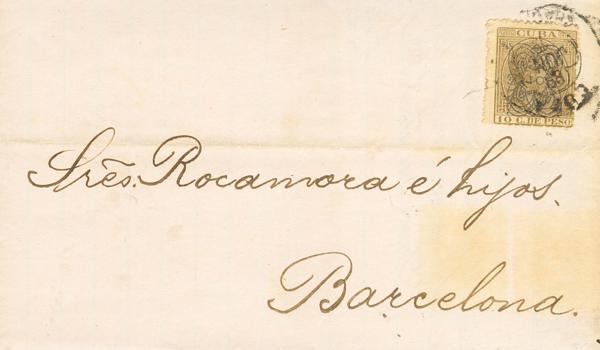 CUBA
10 C. DE PESO
Srēs. Rocamora é hijos.
Barcelona.